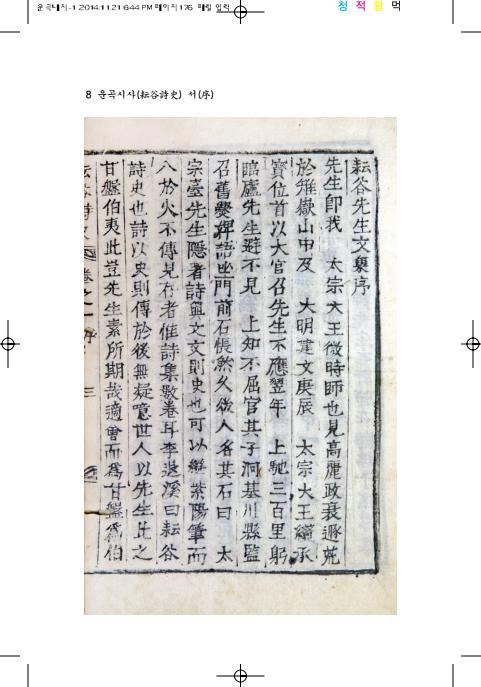 운곡대지-1 2014.11.21 6:44 PM 페이지176 매킨 인력
청 적 황 먹
8 운곡시사(耘谷詩史) 서(序)
耘谷先生文集序
先生卽我 太宗大王微時師也見高麗政衰遯荒
於雉嶽山中及 大明建文庚辰 太宗大王纘承
寶位首以大官召先生不應翌年 上馳三百里躬
臨廬先生避不見 上知不屈官其子泂基川縣監
召舊爨婢語 門前石悵然久後人名其石曰 太
宗臺先生隱者詩與文文則史也可以繼紫陽筆而
入於火不傳見存者惟詩集數卷耳李退溪曰耘谷
詩史也詩以史則傳於後無疑噫世人以先生比之
甘盤伯夷此豈先生素所期哉適會而爲甘盤爲伯
耘谷詩史 卷之一 序 三